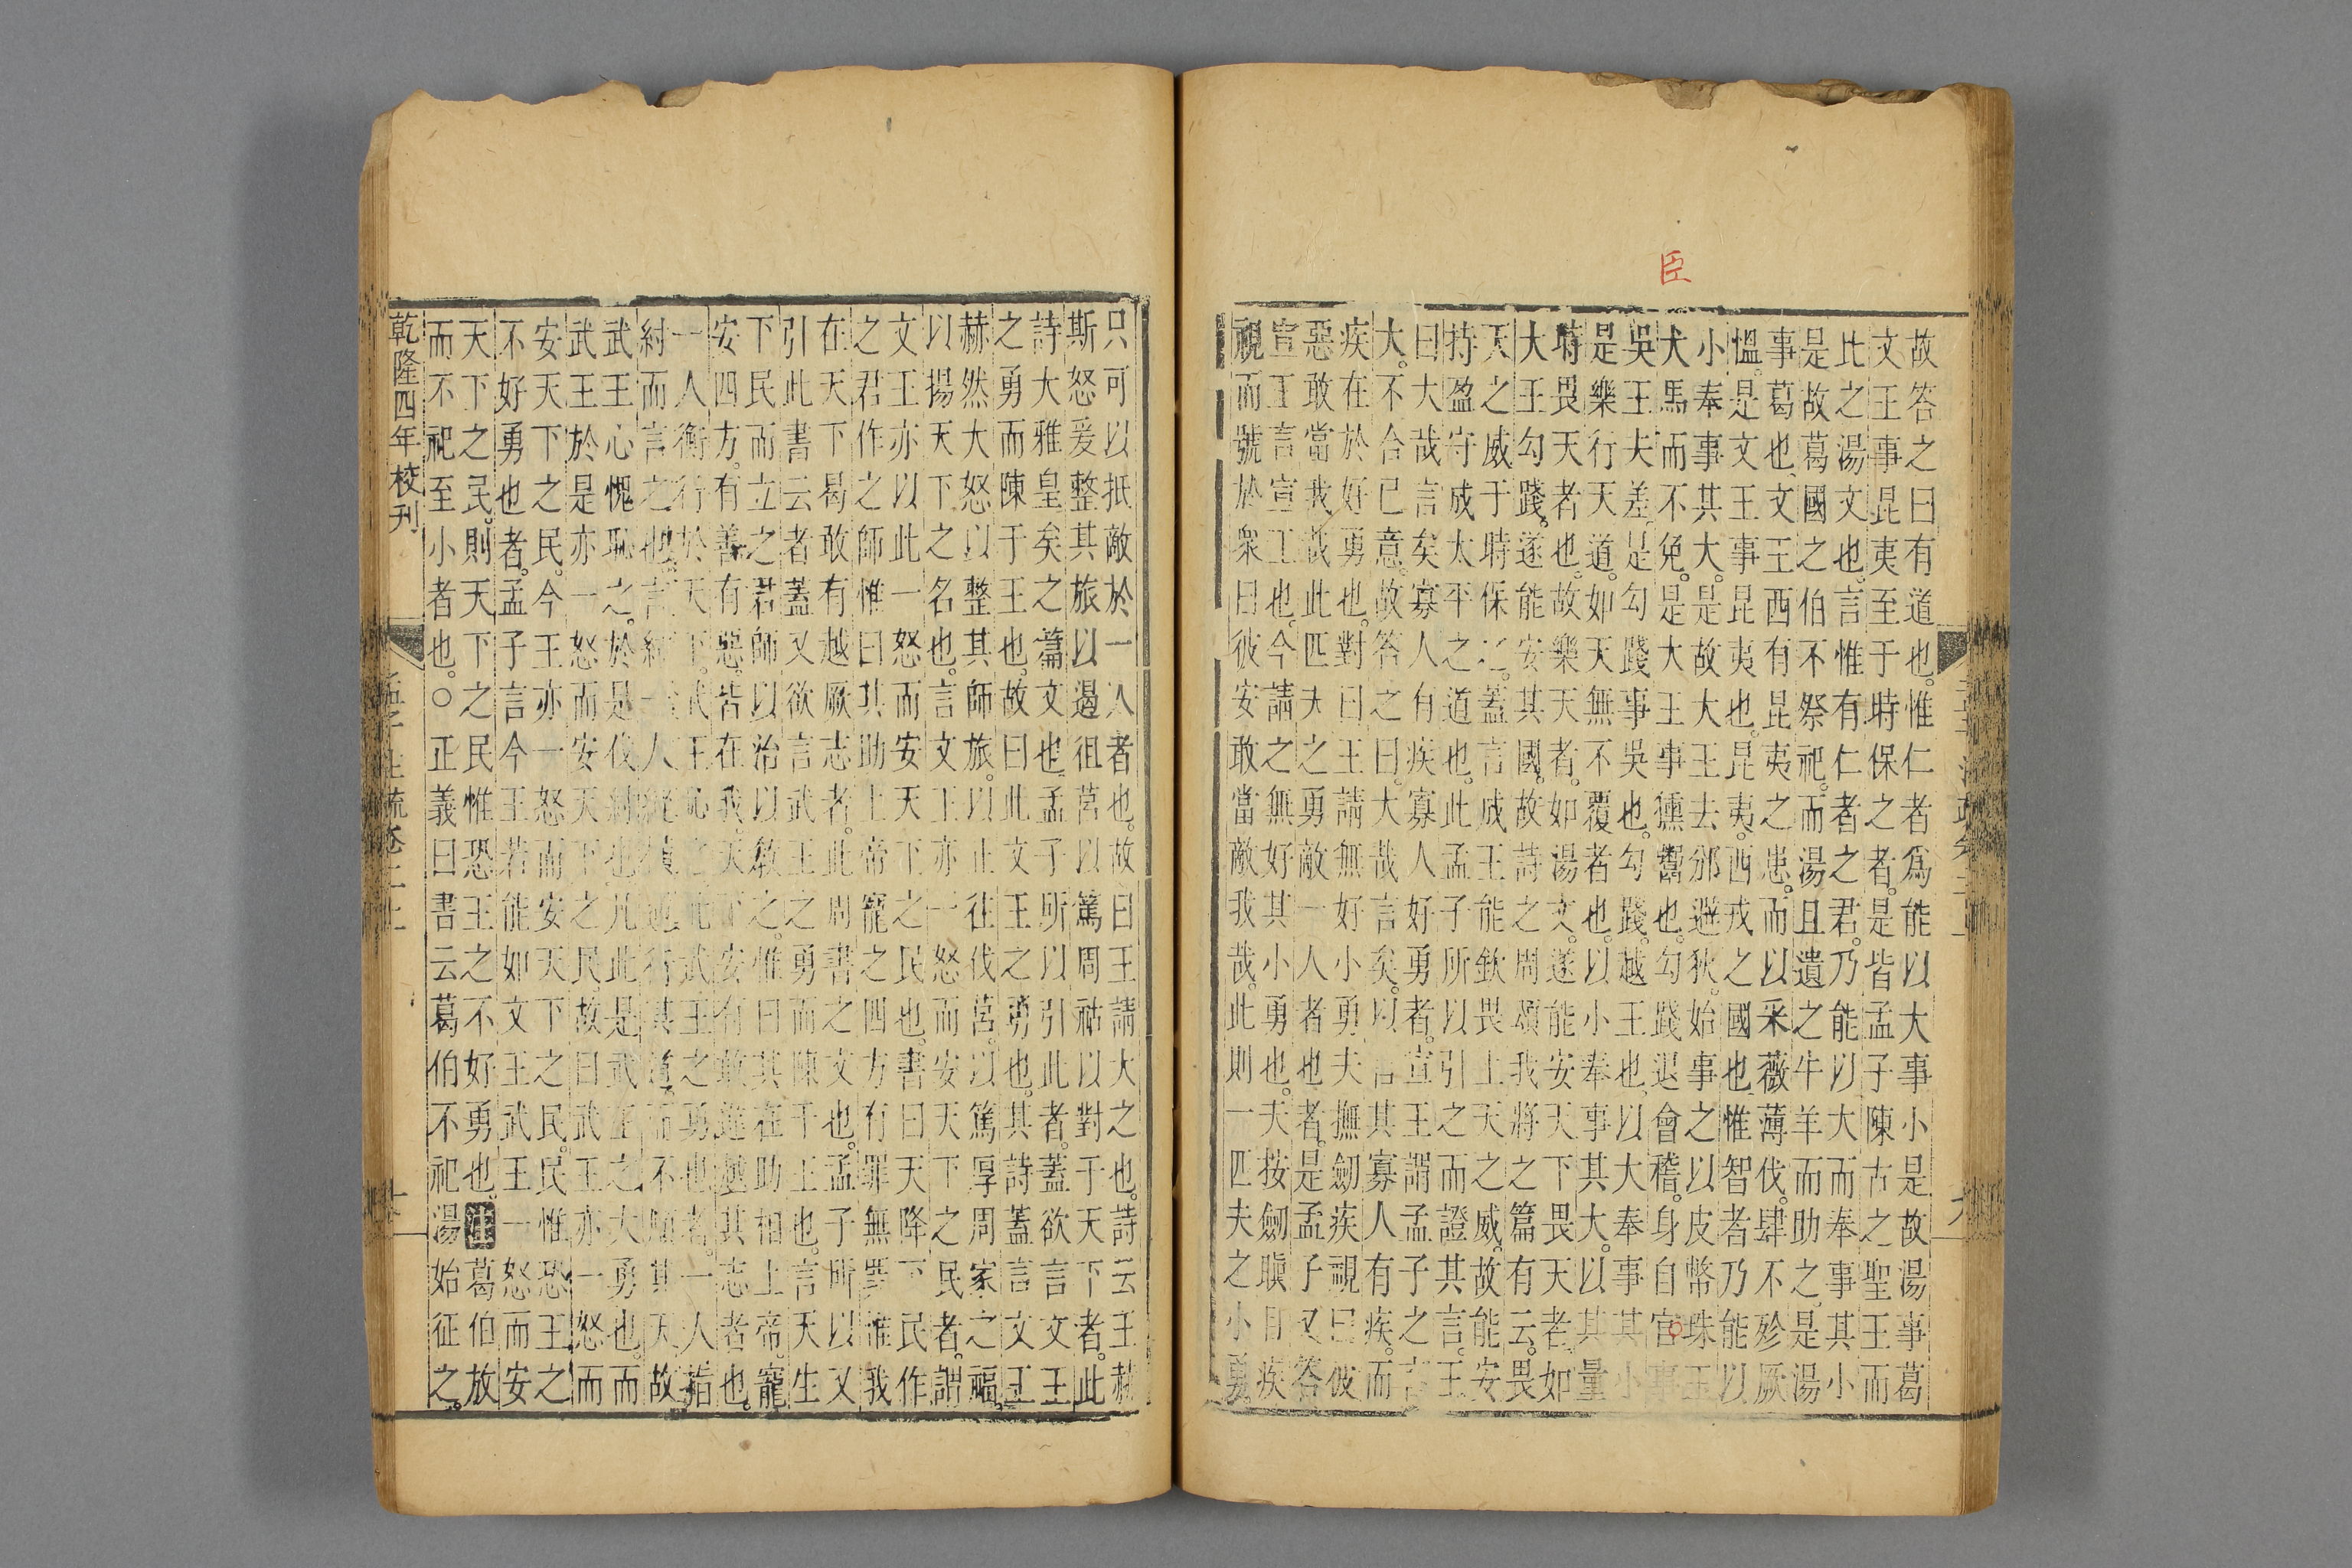 臣
故答之曰有道也惟仁者爲能以大事小是故湯事葛
文王事昆夷至于時保之者是皆孟子陳古之聖王而
比之湯文也言惟有仁者之君乃能以大而奉事其小
是故葛國之伯不祭祀而湯且遺之牛羊而助之是湯
事葛也文王西有昆夷之患而以采薇薄伐肆不殄厥
慍是文王事昆夷也昆夷西戎之國也惟智者乃能以
小奉事其大是故大王去邠避狄始事之以皮幣珠玉
犬馬而不免是大王事獯鬻也勾踐退會稽身自官事
吳王夫差是勾踐事吳也勾踐越王也以大奉事其小
是樂行天道如天無不覆者也以小奉事其大以其量
時畏天者也故樂天者如湯文遂能安天下畏天者如
大王勾踐遂能安其國故詩之周頌我將之篇有云畏
天之威于時保之蓋言成王能欽畏上天之威故能安
持盈守成太平之道也此孟子所以引之而證其言王
曰大哉言矣寡人有疾寡人好勇者宣王謂孟子之言
大不合已意故答之曰大哉言矣以言其寡人有疾而
疾在於好勇也對曰王請無好小勇夫撫劒疾視曰彼
惡敢當我哉此匹夫之勇敵一人者也者是孟子又答
宣王言宣王也今請之無好其小勇也夫按劒瞋目疾
視而號於衆曰彼安敢當敵我哉此則一匹夫之小勇
只可以抵敵於一人者也故曰王請大之也詩云王赫
斯怒爰整其旅以遏徂莒以篤周祜以對于天下者此
詩大雅皇矣之篇文也孟子所以引此者蓋欲言文王
之勇而陳于王也故曰此文王之勇也其詩蓋言文王
赫然大怒以整其師旅以止往伐莒以篤厚周家之福
以揚天下之名也言文王亦一怒而安天下之民者謂
文王亦以此一怒而安天下之民也書曰天降下民作
之君作之師惟曰其助上帝寵之四方有罪無罪惟我
在天下曷敢有越厥志者此周書之文也孟子所以又
引此書云者蓋又欲言武王之勇而陳于王也言天生
下民而立之君師以治以敎之惟曰其在助相上帝寵
安四方有善有惡皆在我天下安有敢違越其志者也
一人衡行於天下武王恥之此武王之勇也者一人指
紂而言之也言紂一人縱橫逆行其道而不順其天故
武王心愧恥之於是伐紂也凡此是武王之大勇也而
武王於是亦一怒而安天下之民故曰武王亦一怒而
安天下之民今王亦一怒而安天下之民民惟恐王之
不好勇也者孟子言今王若能如文王武王一怒而安
天下之民則天下之民惟恐王之不好勇也注葛伯放
而不祀至小者也○正義曰書云葛伯不祀湯始征之
乾隆四年校刊